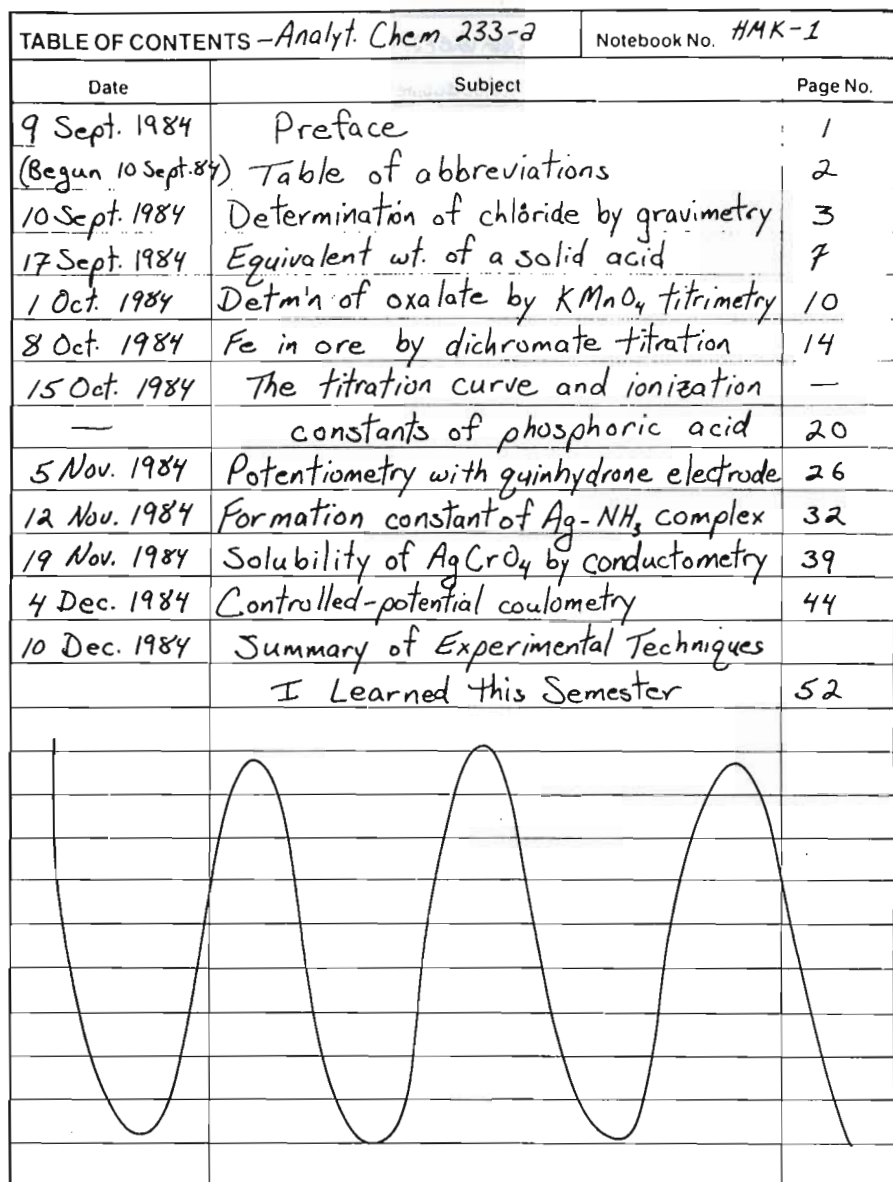 TABLE OF CONTENTS – Analyt. Chem 233-a Notebook No. HMK-1
Date Subject Page No.
9 Sept. 1984 Preface 1
(Begun 10 Sept. 84) Table of abbreviations 2
10 Sept. 1984 Determination of chloride by gravimetry 3
17 Sept. 1984 Equivalent wt. of a solid acid 7
1 Oct. 1984 Detm'n of oxalate by KMnO₄ titrimetry 10
8 Oct. 1984 Fe in ore by dichromate titration 14
15 Oct. 1984 The titration curve and ionization —
— constants of phosphoric acid 20
5 Nov. 1984 Potentiometry with quinhydrone electrode 26
12 Nov. 1984 Formation constant of Ag-NH₃ complex 32
19 Nov. 1984 Solubility of AgCrO₄ by conductometry 39
4 Dec. 1984 Controlled-potential coulometry 44
10 Dec. 1984 Summary of Experimental Techniques
I Learned this Semester 52